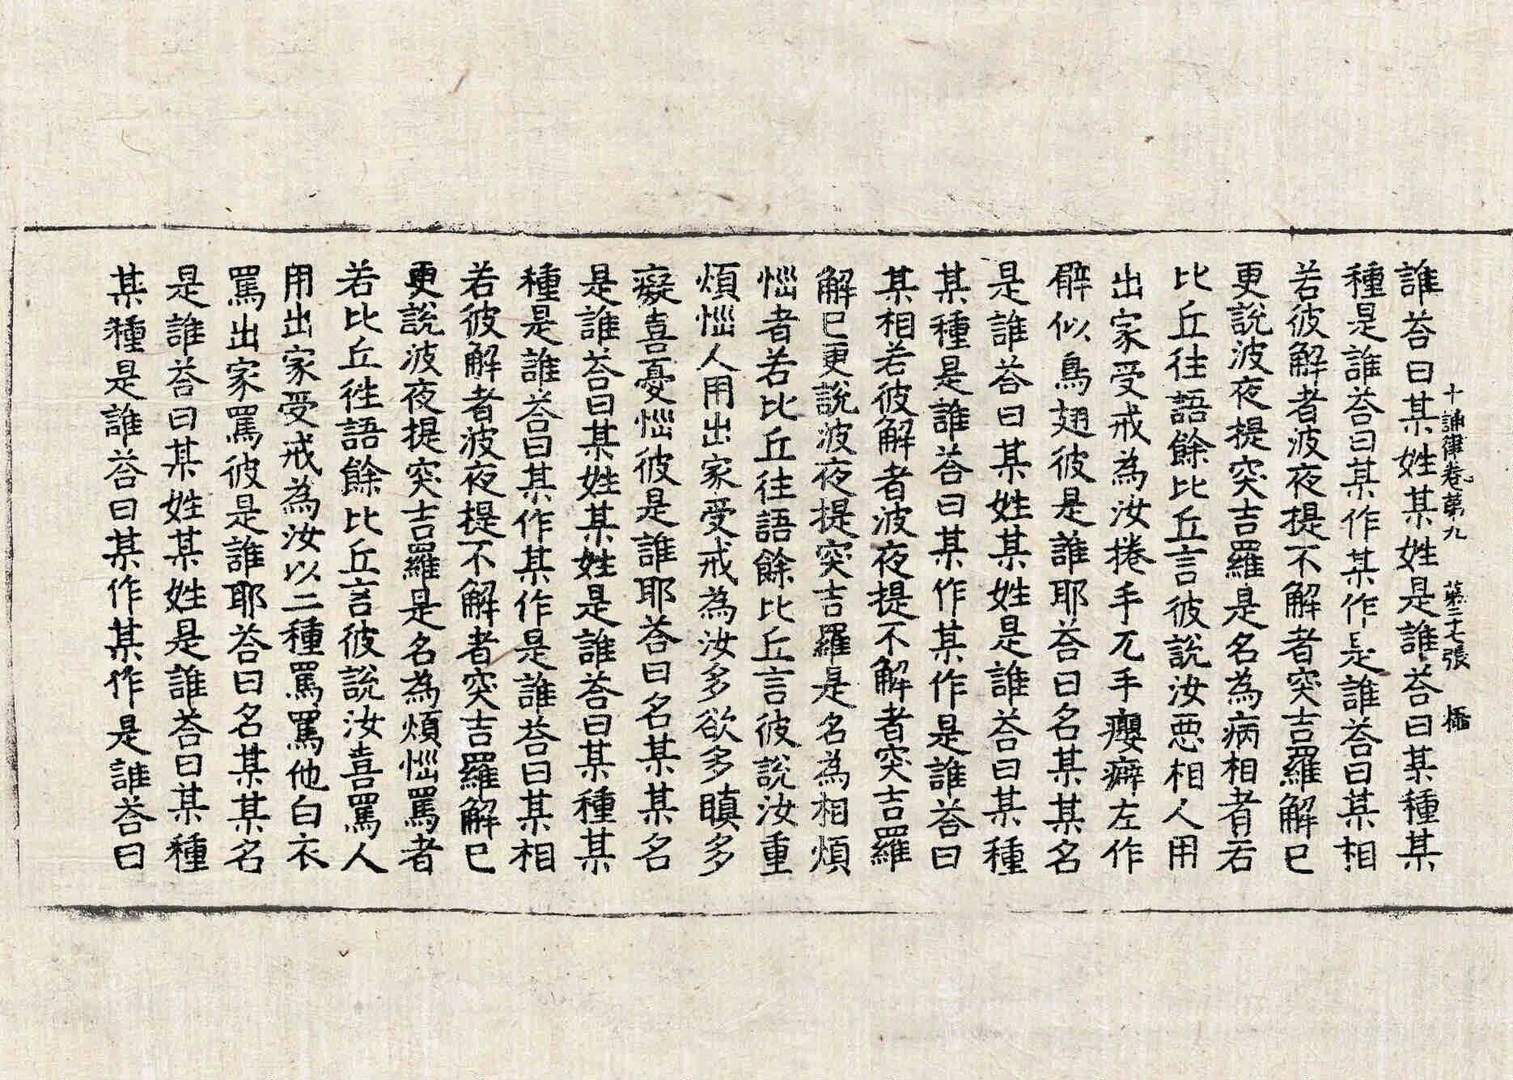 十誦律卷第九 第二十七張 㮹
誰荅曰某姓某姓是誰荅曰某種某
種是誰荅曰某作某作是誰荅曰某相
若彼解者波夜提不解者突吉羅解已
更說波夜提突吉羅是名為病相者若
比丘往語餘比丘言彼說汝惡相人用
出家受戒為汝捲手兀手癭癖左作
臂似鳥翅彼是誰耶荅曰名某某名
是誰荅曰某姓某姓是誰荅曰某種
某種是誰荅曰某作某作是誰荅曰
某相若彼解者波夜提不解者突吉羅
解已更說波夜提突吉羅是名為相煩
惱者若比丘往語餘比丘言彼說汝重
煩惱人用出家受戒為汝多欲多瞋多
癡喜憂惱彼是誰耶荅曰名某某名
是誰荅曰某姓某姓是誰荅曰某種某
種是誰荅曰某作某作是誰荅曰某相
若彼解者波夜提不解者突吉羅解已
更說波夜提突吉羅是名為煩惱罵者
若比丘徃語餘比丘言彼說汝喜罵人
用出家受戒為汝以二種罵罵他白衣
罵出家罵彼是誰耶荅曰名某某名
是誰荅曰某姓某姓是誰荅曰某種
某種是誰荅曰某作某作是誰荅曰